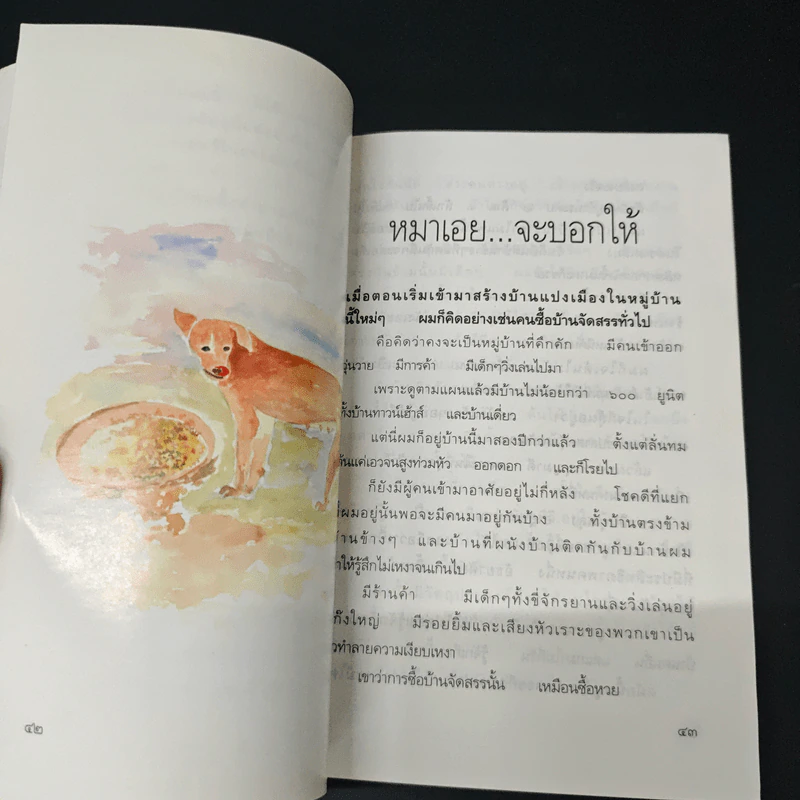 ๔๒
หมาเอย...จะบอกให้
เมื่อตอนเริ่มเข้ามาสร้างบ้านแปงเมืองในหมู่บ้าน
นี้ใหม่ๆ ผมก็คิดอย่างเช่นคนซื้อบ้านจัดสรรทั่วไป
คือคิดว่าคงจะเป็นหมู่บ้านที่คึกคัก มีคนเข้าออก
วุ่นวาย มีการค้า มีเด็กๆวิ่งเล่นไปมา
เพราะดูตามแผนแล้วมีบ้านไม่น้อยกว่า ๖๐๐ ยูนิต
ทั้งบ้านทาวน์เฮ้าส์ และบ้านเดี่ยว
แต่นี่ผมก็อยู่บ้านนี้มาสองปีกว่าแล้ว ตั้งแต่ลั่นทม
ต้นแค่เอวจนสูงท่วมหัว ออกดอก และก็โรยไป
ก็ยังมีผู้คนเข้ามาอาศัยอยู่ไม่กี่หลัง โชคดีที่แยก
ที่ผมอยู่นั้นพอจะมีคนมาอยู่กันบ้าง ทั้งบ้านตรงข้าม
บ้านข้างๆ และบ้านที่ผนังบ้านติดกันกับบ้านผม
ทำให้รู้สึกไม่เหงาจนเกินไป
มีร้านค้า มีเด็กๆทั้งขี่จักรยานและวิ่งเล่นอยู่
ก๊งใหญ่ มีรอยยิ้มและเสียงหัวเราะของพวกเขาเป็น
ทำลายความเงียบเหงา
เขาว่าการซื้อบ้านจัดสรรนั้น เหมือนซื้อหวย
๔๓